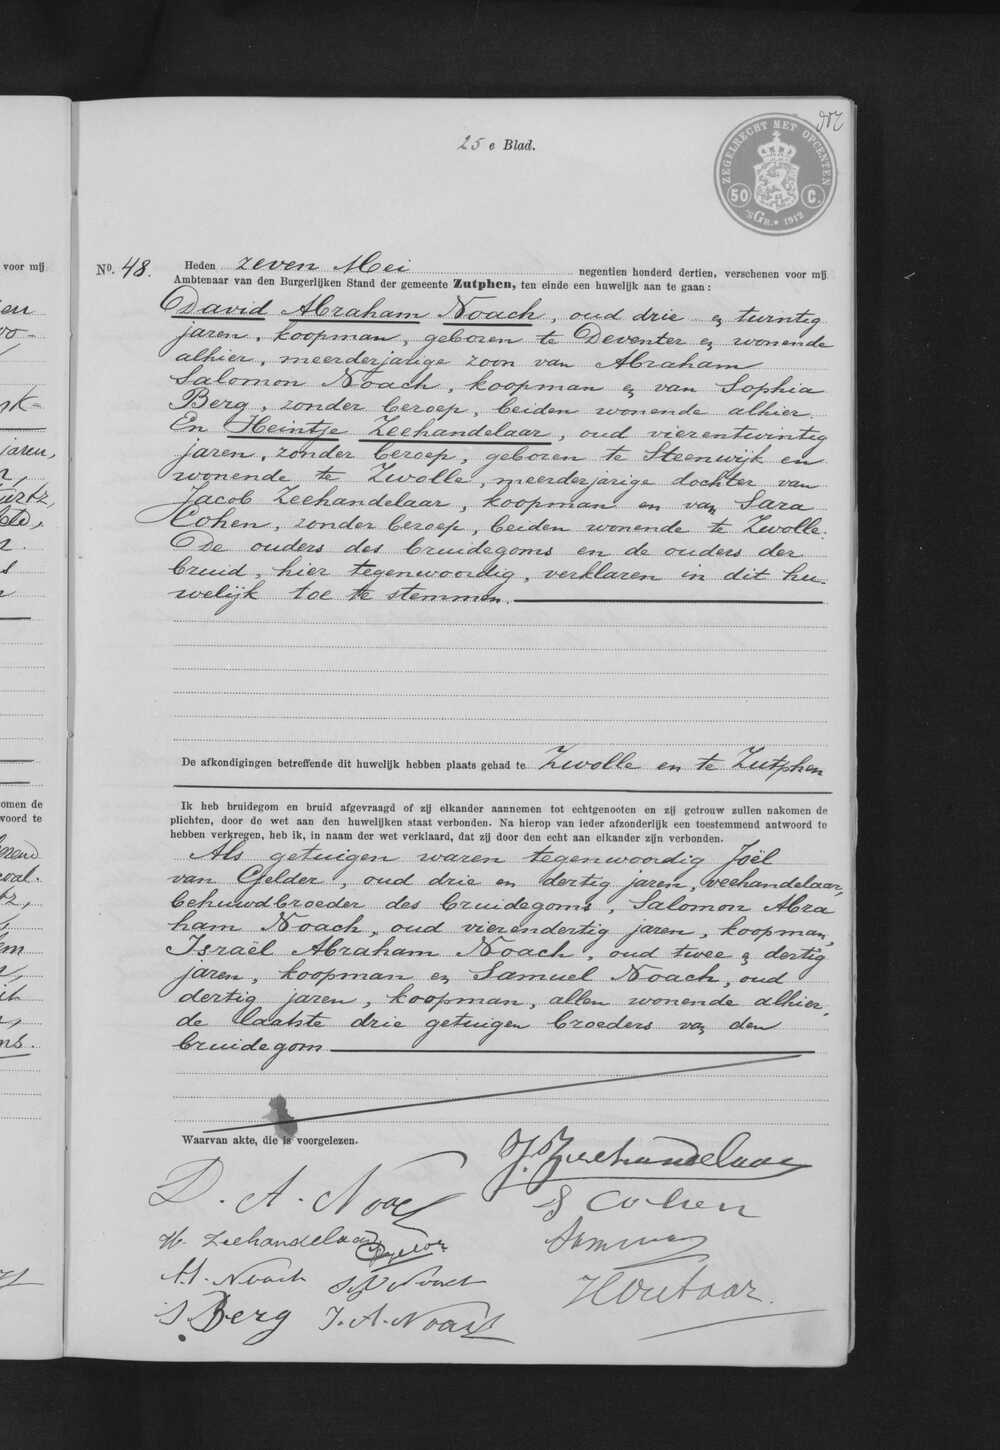 25e Blad.
ZEGELRECHT MET OPCENTEN
50 C.
'sGR. * 1912
voor mij
No. 48.
Heden zeven Mei negentien honderd dertien, verschenen voor mij
Ambtenaar van den Burgerlijken Stand der gemeente Zutphen, ten einde een huwelijk aan te gaan:
David Abraham Noach, oud drie en twintig
jaren, koopman, geboren te Deventer en wonende
alhier, meerderjarige zoon van Abraham
Salomon Noach, koopman en van Sophia
Berg, zonder beroep, beiden wonende alhier.
En Heintje Zeehandelaar, oud vierentwintig
jaren, zonder beroep, geboren te Steenwijk en
wonende te Zwolle, meerderjarige dochter van
Jacob Zeehandelaar, koopman en van Sara
Cohen, zonder beroep, beiden wonende te Zwolle.
De ouders des bruidegoms en de ouders der
bruid, hier tegenwoordig, verklaren in dit hu-
welijk toe te stemmen.
De afkondigingen betreffende dit huwelijk hebben plaats gehad te Zwolle en te Zutphen
Ik heb bruidegom en bruid afgevraagd of zij elkander aannemen tot echtgenooten en zij getrouw zullen nakomen de
plichten, door de wet aan den huwelijken staat verbonden. Na hierop van ieder afzonderlijk een toestemmend antwoord te
hebben verkregen, heb ik, in naam der wet verklaard, dat zij door den echt aan elkander zijn verbonden.
Als getuigen waren tegenwoordig Joël
van Gelder, oud drie en dertig jaren, veehandelaar,
behuwdbroeder des bruidegoms, Salomon Abra
ham Noach, oud vierendertig jaren, koopman,
Israël Abraham Noach, oud twee en dertig
jaren, koopman en Samuel Noach, oud
dertig jaren, koopman, allen wonende alhier,
de laatste drie getuigen broeders van den
bruidegom
Waarvan akte, die is voorgelezen.
J. Zeehandelaar
D. A. Noach
S Cohen
H. Zeehandelaar
A. S. Noach
S. Berg
J. A. Noach